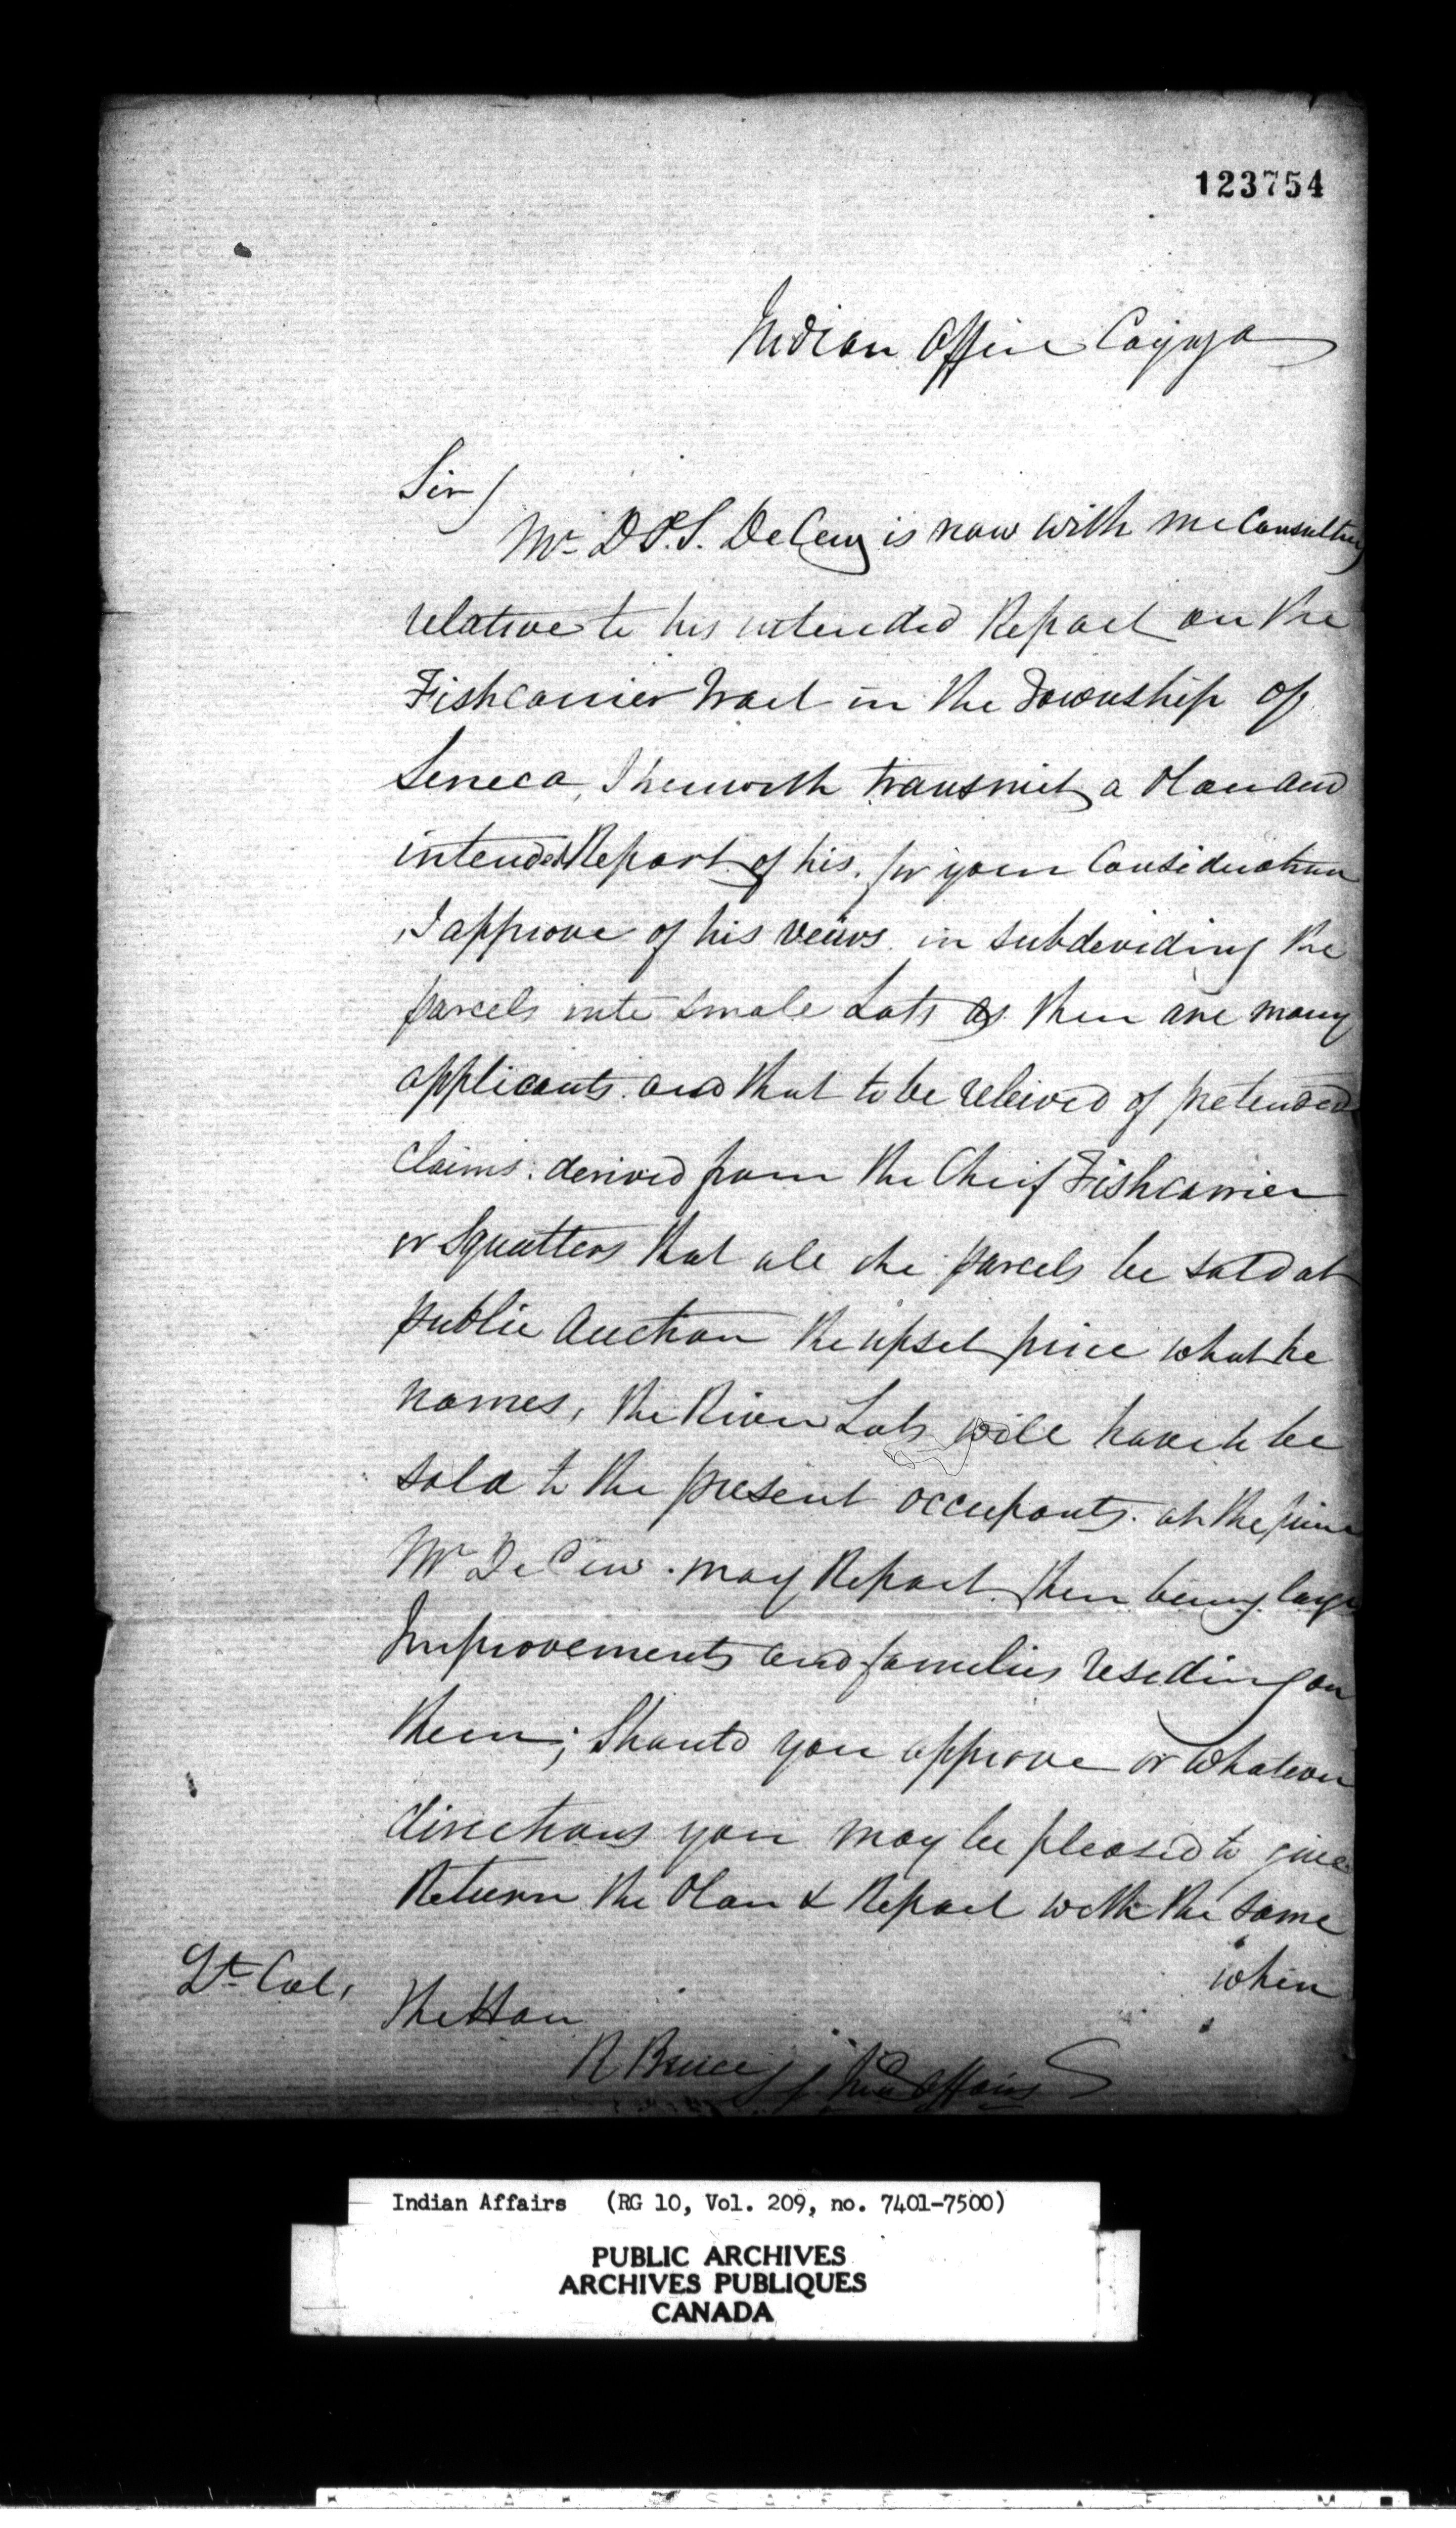 123754
Indian Office Cayuga
Sir/
Mr D.P.S. DeCew is now with me Consulting
relative to his intended Report on the
Fishcarrier Tract in the Township of
Seneca, I herewith transmit a Plan and
intended Report of his. for your Consideration
, I approve of his veiws in subdeviding the
parcels into smale Lots as there are many
applicants and that to be releived of pretended
Claims. derived from the Cheif Fishcarrier
or Squatters that all the parcels be sold at
public Auction the upset price what he
names, the River Lots will have to be
sold to the present occupants. at the price
Mr DeCew. may Report. there being large
Improvements and families residing on
them; Should you approve or whatever
directions you may be pleased to give
Return the Plan & Report with the same
when
Lt Col,
The Hon
R Bruce
Ind Affairs
Indian Affairs (RG 10, Vol. 209, no. 7401-7500)
PUBLIC ARCHIVES
ARCHIVES PUBLIQUES
CANADA